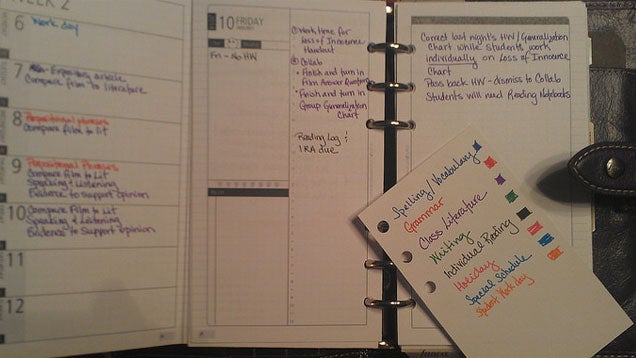 WEEK 2
6
Work day
7
Expository article
Compare film to literature
8
Prepositional phrases
Compare film to lit
9
Prepositional Phrases
Compare Film to Lit
Speaking & Listening
Evidence to support opinion
10
Compare Film to Lit
Speaking & Listening
Evidence to support opinion
11
12
10 FRIDAY
Fri - No HW
① Work time for
Loss of Innocence
Handout
② Collab
• Finish and turn in
Film Answer Questions
• Finish and turn in
Group Generalization
Chart
Reading Log &
IRA due
Correct last night's HW/Generalization
Chart while students work
individually on Loss of Innocence
Chart
Pass back HW - dismiss to Collab
Students will need Reading Notebooks
Spelling/Vocabulary
Grammar
Class Literature
Writing
Individual Reading
Holiday
Special Schedule
Student Work day